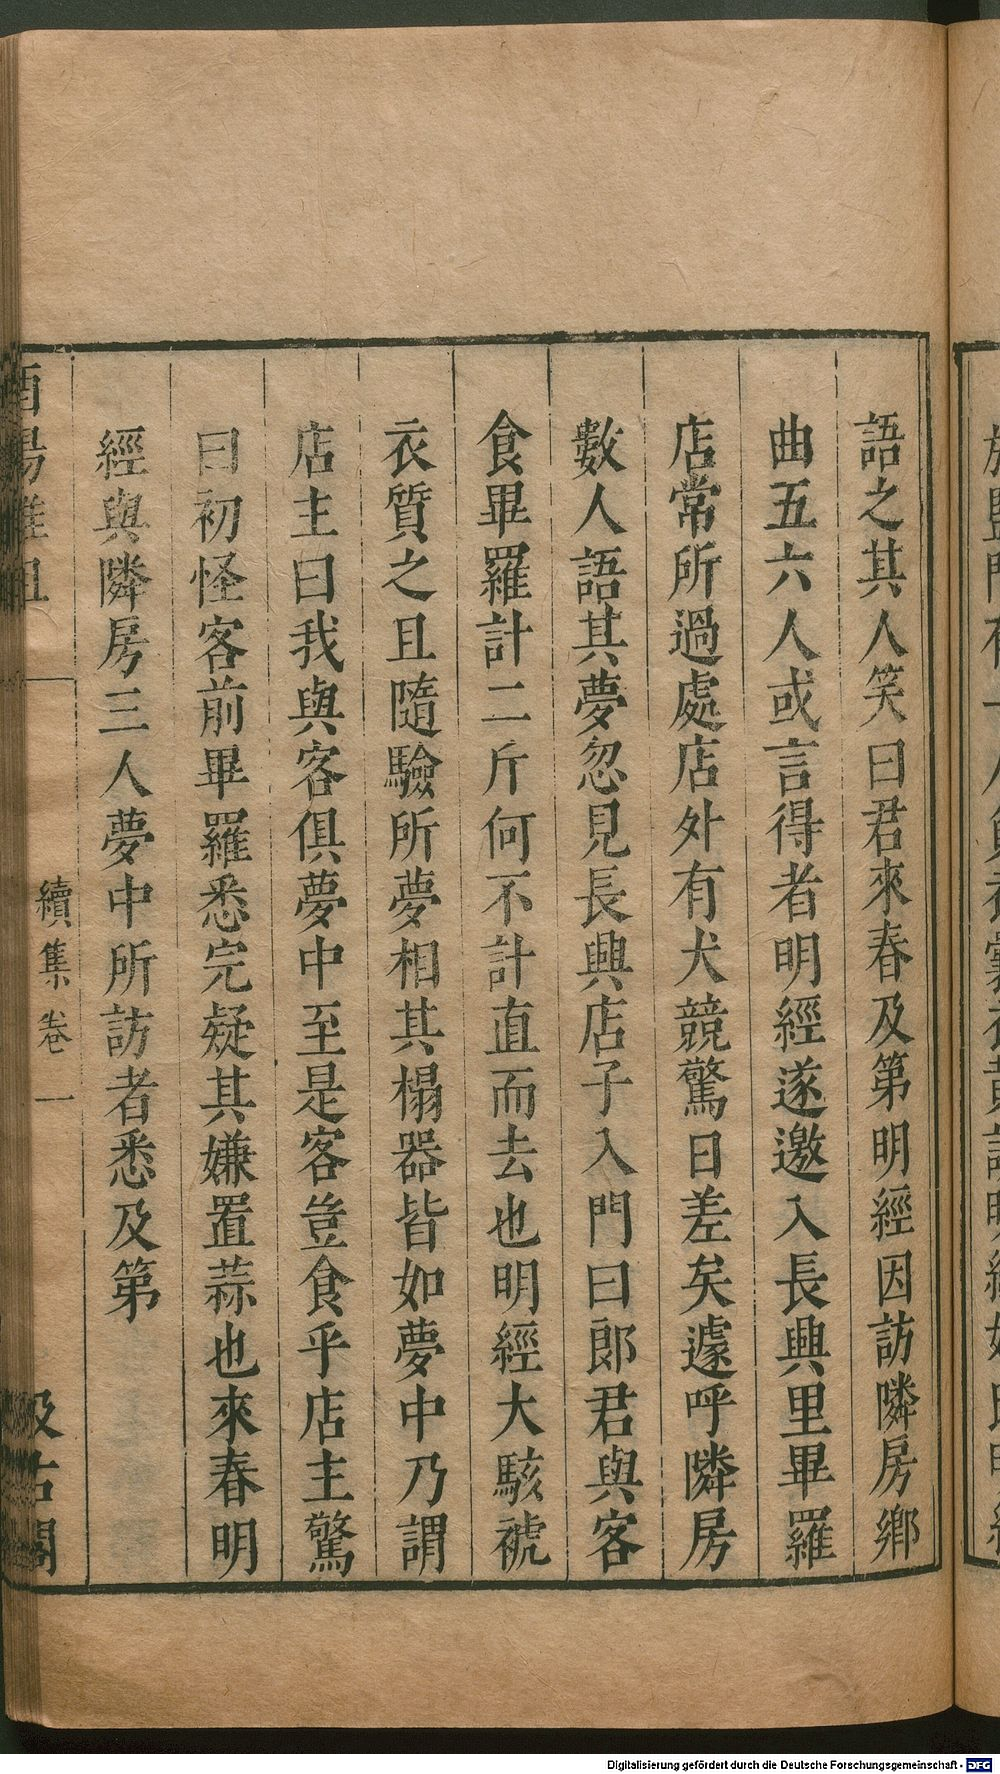 語之其人笑曰君來春及第明經因訪隣房鄉
曲五六人或言得者明經遂邀入長興里畢羅
店常所過處店外有犬競驚曰差矣遽呼隣房
數人語其夢忽見長興店子入門曰郎君與客
食畢羅計二斤何不計直而去也明經大駭褫
衣質之且隨驗所夢相其榻器皆如夢中乃謂
店主曰我與客俱夢中至是客豈食乎店主驚
曰初怪客前畢羅悉完疑其嫌置蒜也來春明
經與隣房三人夢中所訪者悉及第
酉陽雜俎 續集卷一 汲古閣
Digitalisierung gefördert durch die Deutsche Forschungsgemeinschaft - DFG